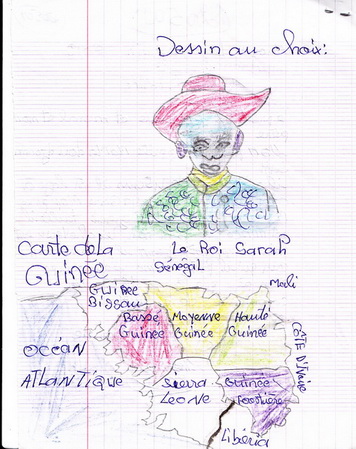 Dessin au choix:
Le Roi Sarah
Carte de la
Guinée
Sénégal
Mali
Guinée
Bissau
Basse
Guinée
Moyenne
Guinée
Haute
Guinée
CÔTE D'IVOIRE
OCÉAN
ATLANTIQUE
Sierra
LEONE
Guinée
Forestière
Libéria